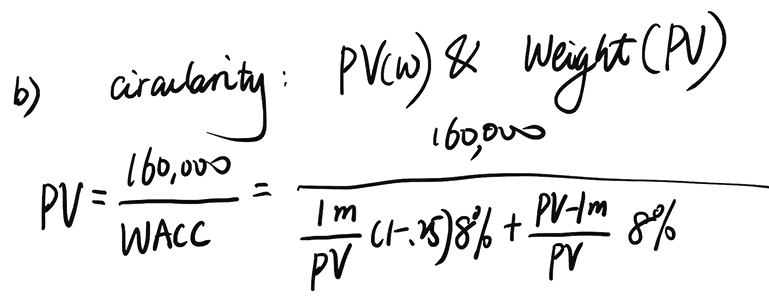 b) circularity: PV(w) & Weight(PV)
PV = 160,000 / WACC = 160,000 / (1m/PV (1-.25)8% + PV-1m/PV 8%)